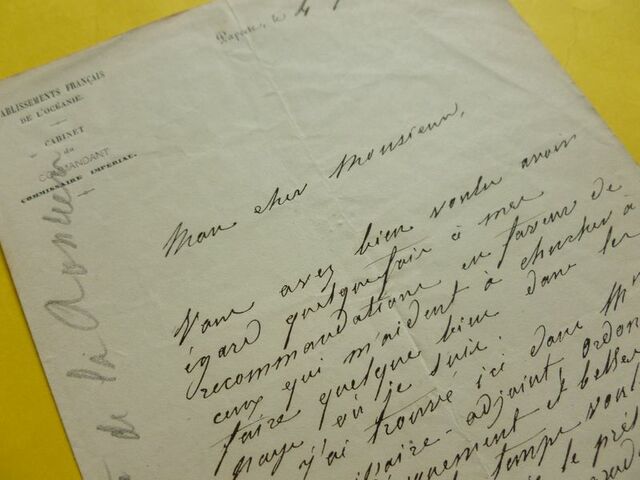 Papeete, le 4
ABLISSEMENTS FRANÇAIS
DE L'OCÉANIE.
CABINET
du
COMMANDANT
COMMISSAIRE IMPÉRIAL.
de la
Mon cher Monsieur,
Vous avez bien voulu avoir
égard quelquefois à mes
recommandations en faveur de
ceux qui m'aident à chercher à
faire quelque bien dans les
pays où je suis.
J'ai trouvé ici dans Mr
adjoint, ordon
et
temps
le